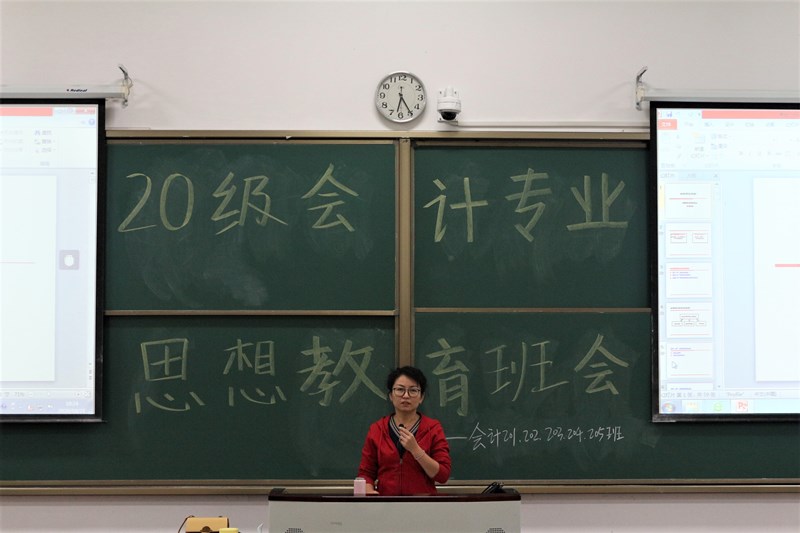 20级会计专业
思想教育班会
——会计201.202.203.204.205班